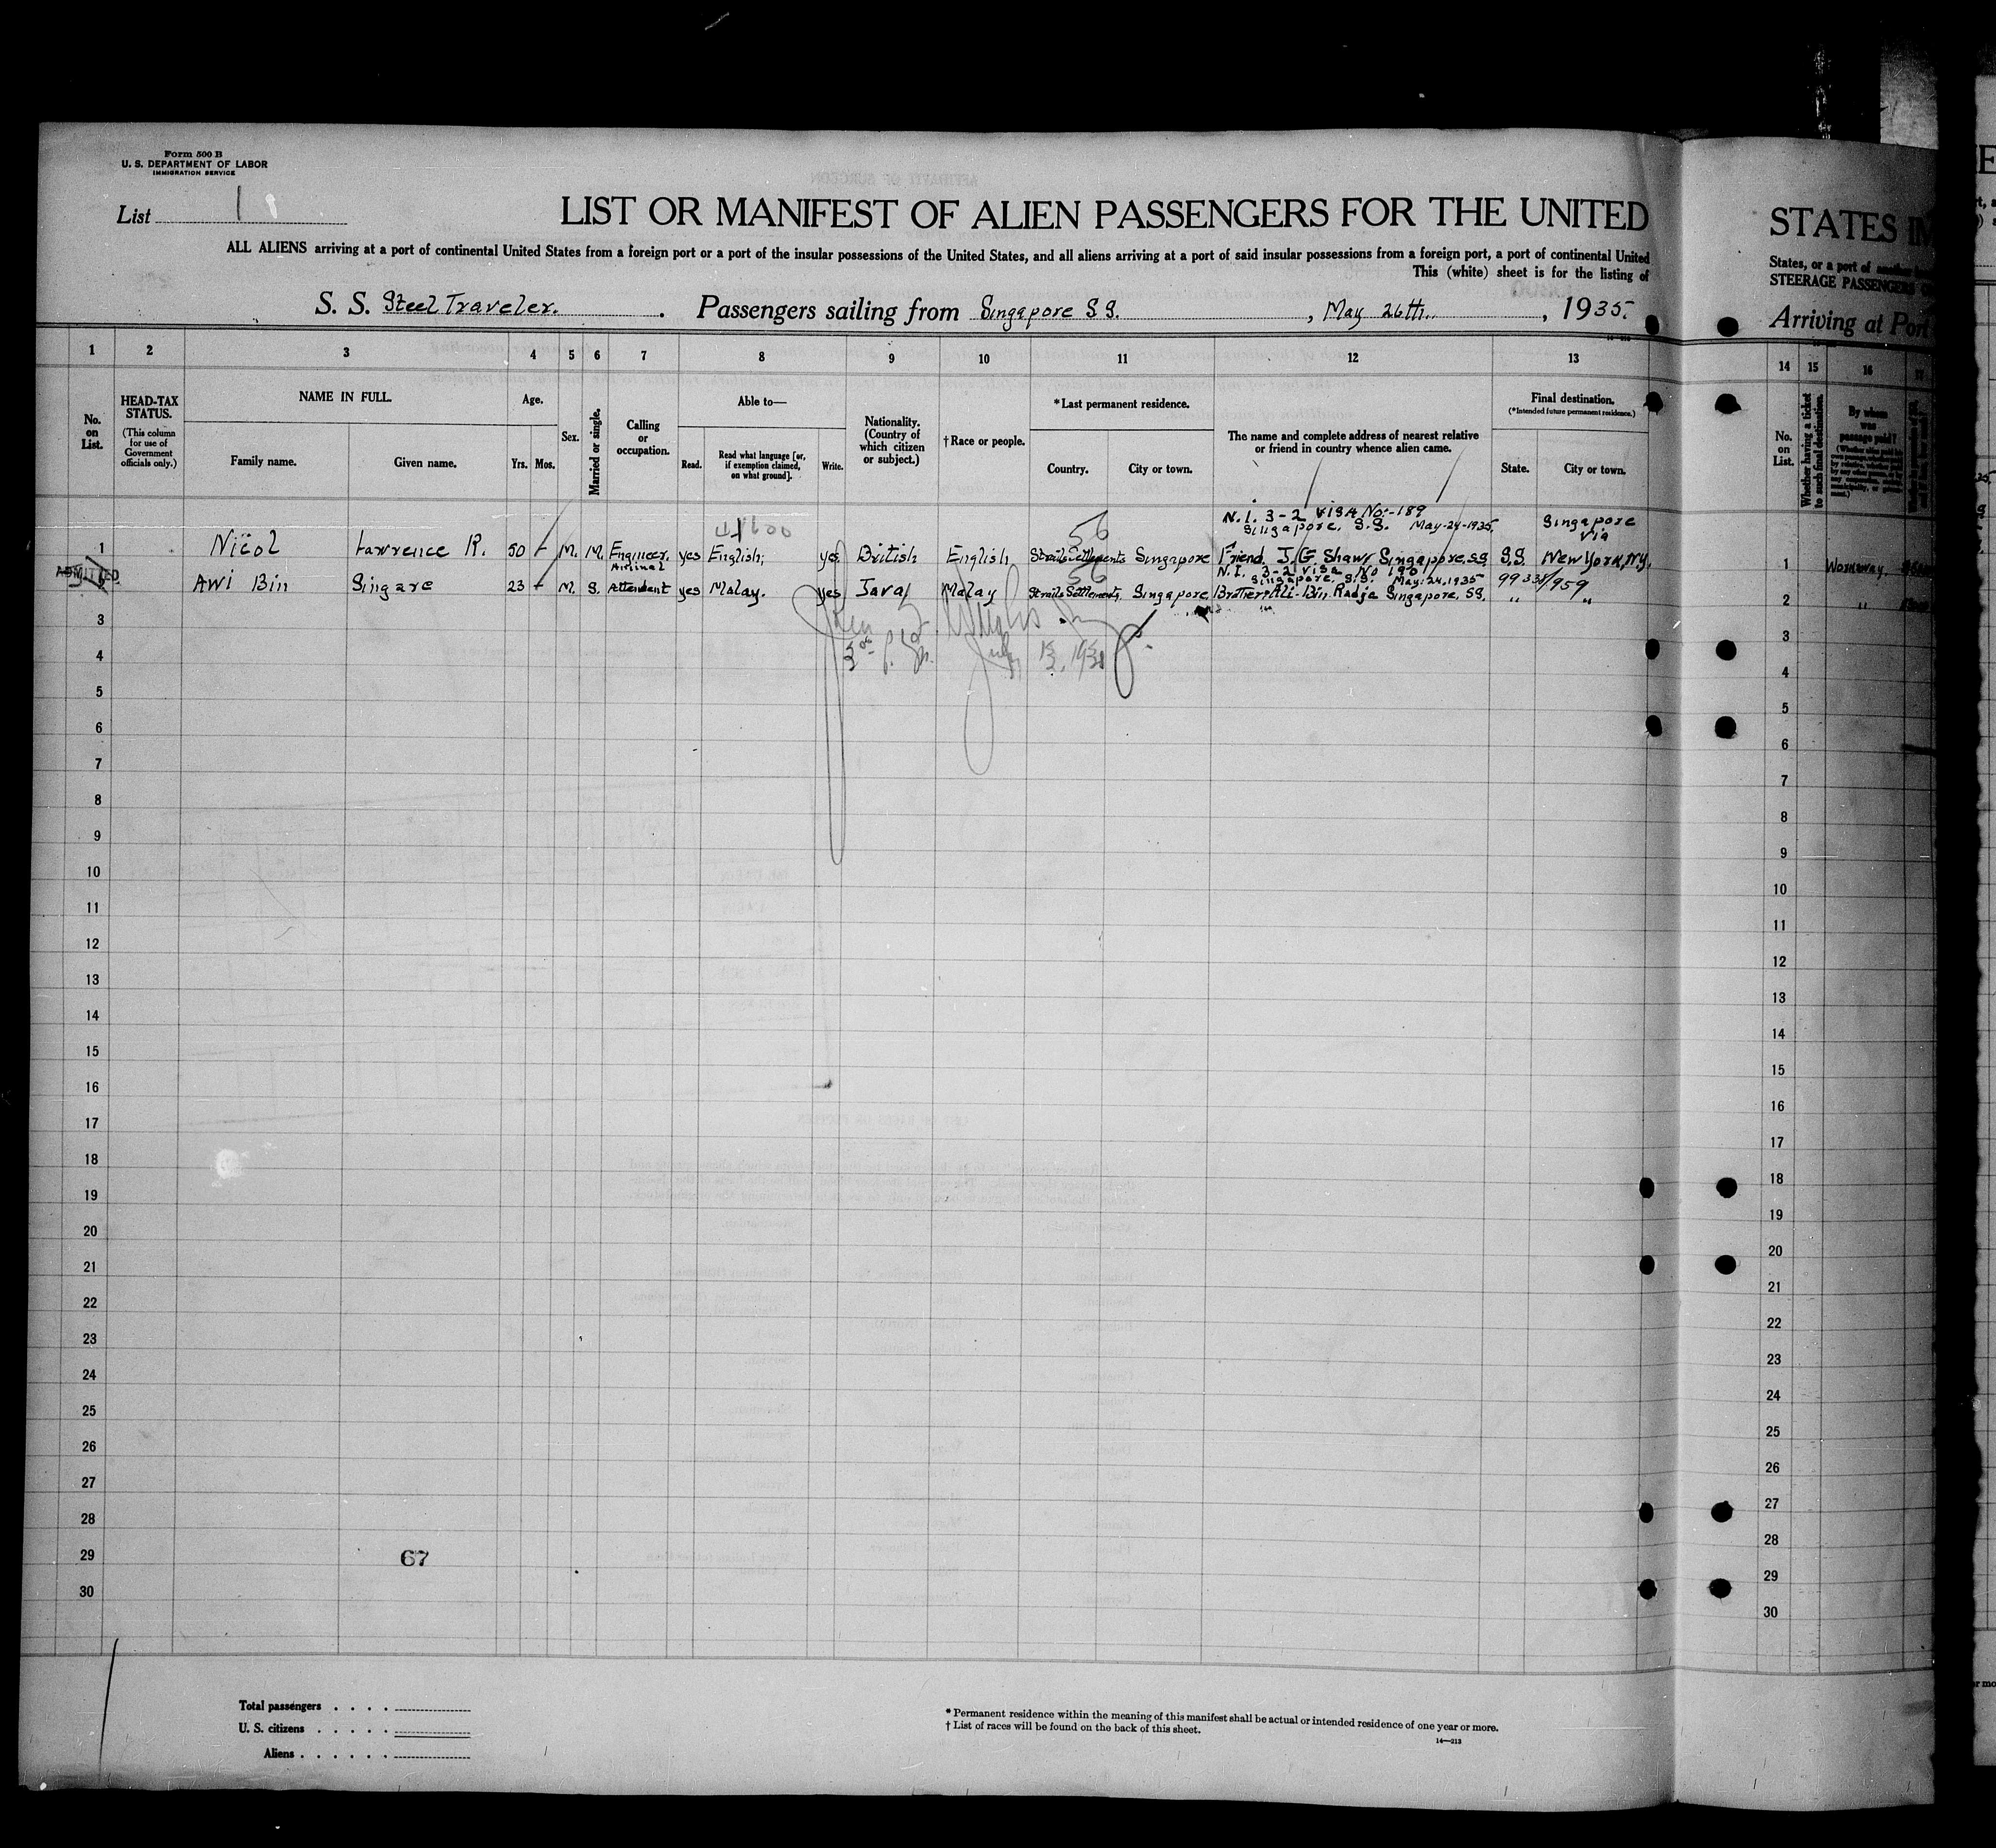 Form 500 B
U. S. DEPARTMENT OF LABOR
IMMIGRATION SERVICE
List 1
LIST OR MANIFEST OF ALIEN PASSENGERS FOR THE UNITED
ALL ALIENS arriving at a port of continental United States from a foreign port or a port of the insular possessions of the United States, and all aliens arriving at a port of said insular possessions from a foreign port, a port of continental United
This (white) sheet is for the listing of
S. S. Steel Traveler. Passengers sailing from Singapore S S. , May 26th. , 1935.
1 2 3 4 5 6 7 8 9 10 11 12 13
No. on List.
HEAD-TAX STATUS.
(This column for use of Government officials only.)
NAME IN FULL.
Family name. Given name.
Age.
Yrs. Mos.
Sex.
Married or single.
Calling or occupation.
Able to—
Read. Read what language [or, if exemption claimed, on what ground]. Write.
Nationality. (Country of which citizen or subject.)
†Race or people.
*Last permanent residence.
Country. City or town.
The name and complete address of nearest relative or friend in country whence alien came.
Final destination.
(*Intended future permanent residence.)
State. City or town.
N.I. 3-2 Visa No:-189
Singapore, S.S. May-24-1935.
Singapore
Via
56
1 Nicol Lawrence R. 50 - M. M. Engineer. yes English; yes British English Straits Settlements Singapore Friend. Shaw Singapore. SS S.S. New York, N.Y.
N.I. 3-2 Visa No 190
Singapore. S.S. May. 24. 1935
56
99338/959
ADMITTED
2 Awi Bin Singare 23 - M. S. Animal Attendant yes Malay. yes Java Malay Straits Settlements, Singapore Brother Ali-Bin Radja Singapore, SS. " "
3
4
5
6
7
8
9
10
11
12
13
14
15
16
17
18
19
20
21
22
23
24
25
26
27
28
29
30
67
Total passengers
U. S. citizens
Aliens
* Permanent residence within the meaning of this manifest shall be actual or intended residence of one year or more.
† List of races will be found on the back of this sheet.
14—213
STATES IM
States, or a port of another
STEERAGE PASSENGERS
Arriving at Port
14 15 16 17
No. on List.
Whether having a ticket to such final destination.
By whom was passage paid?
1 Workaway.
2 "
3
4
5
6
7
8
9
10
11
12
13
14
15
16
17
18
19
20
21
22
23
24
25
26
27
28
29
30